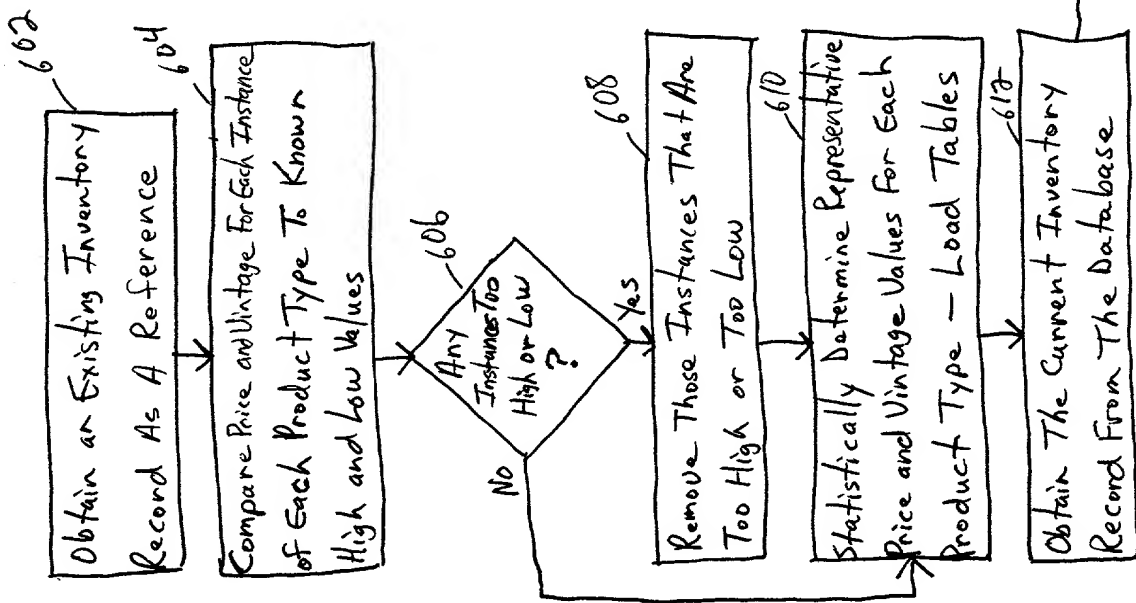 602
Obtain an Existing Inventory
Record As A Reference
604
Compare Price and Vintage For Each Instance
of Each Product Type To Known
High and Low Values
606
Any
Instances Too
High or Low
?
Yes
No
608
Remove Those Instances That Are
Too High or Too Low
610
Statistically Determine Representative
Price and Vintage Values For Each
Product Type — Load Tables
612
Obtain The Current Inventory
Record From The Database